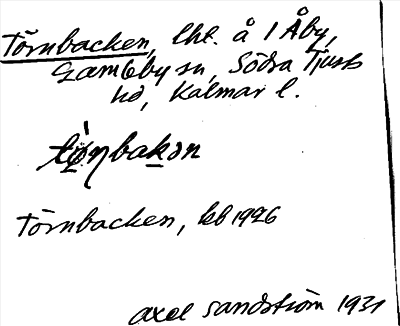 Törnbacken, lht. å 1 Åby,
Gamleby sn, Södra Tjusts
hd, Kalmar l.
tø̀ṇbakən
Törnbacken, kb 1926
Axel Sandström 1931